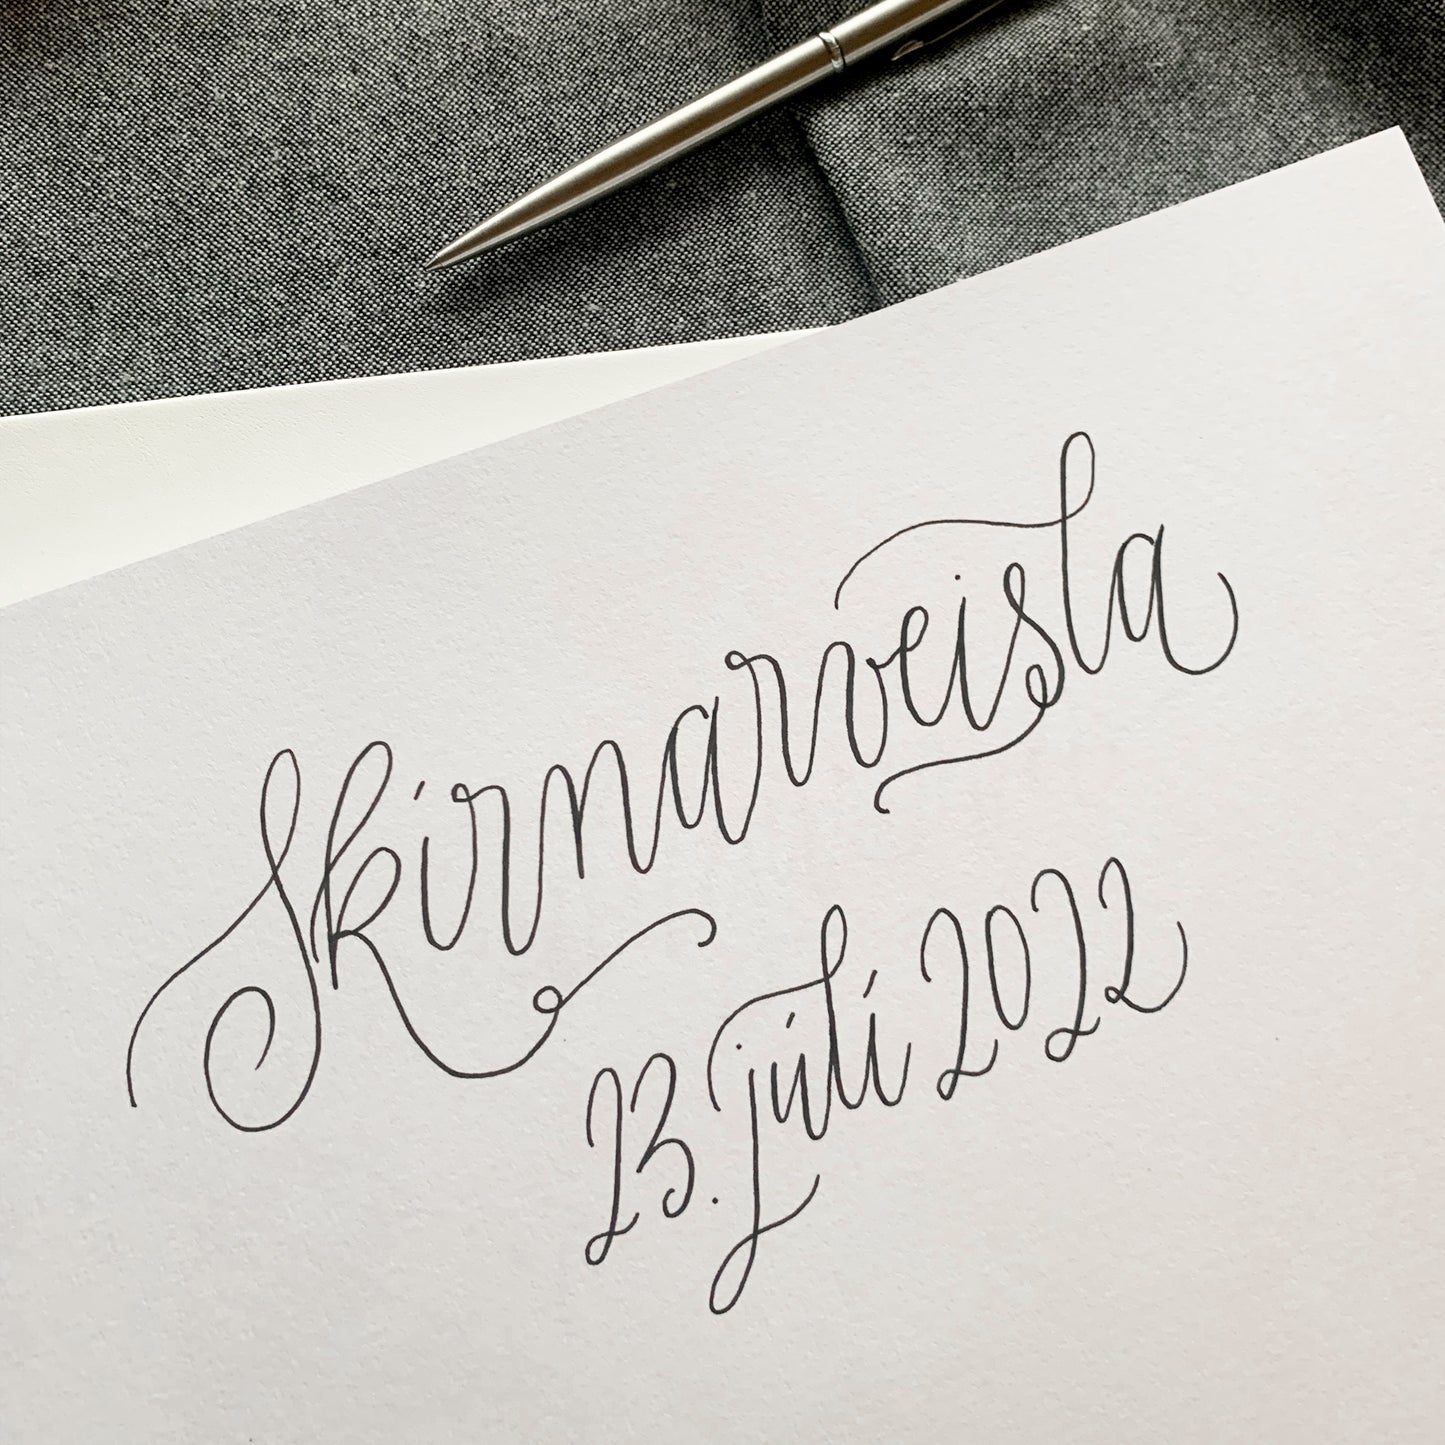 Skírnarveisla
23. júlí 2022